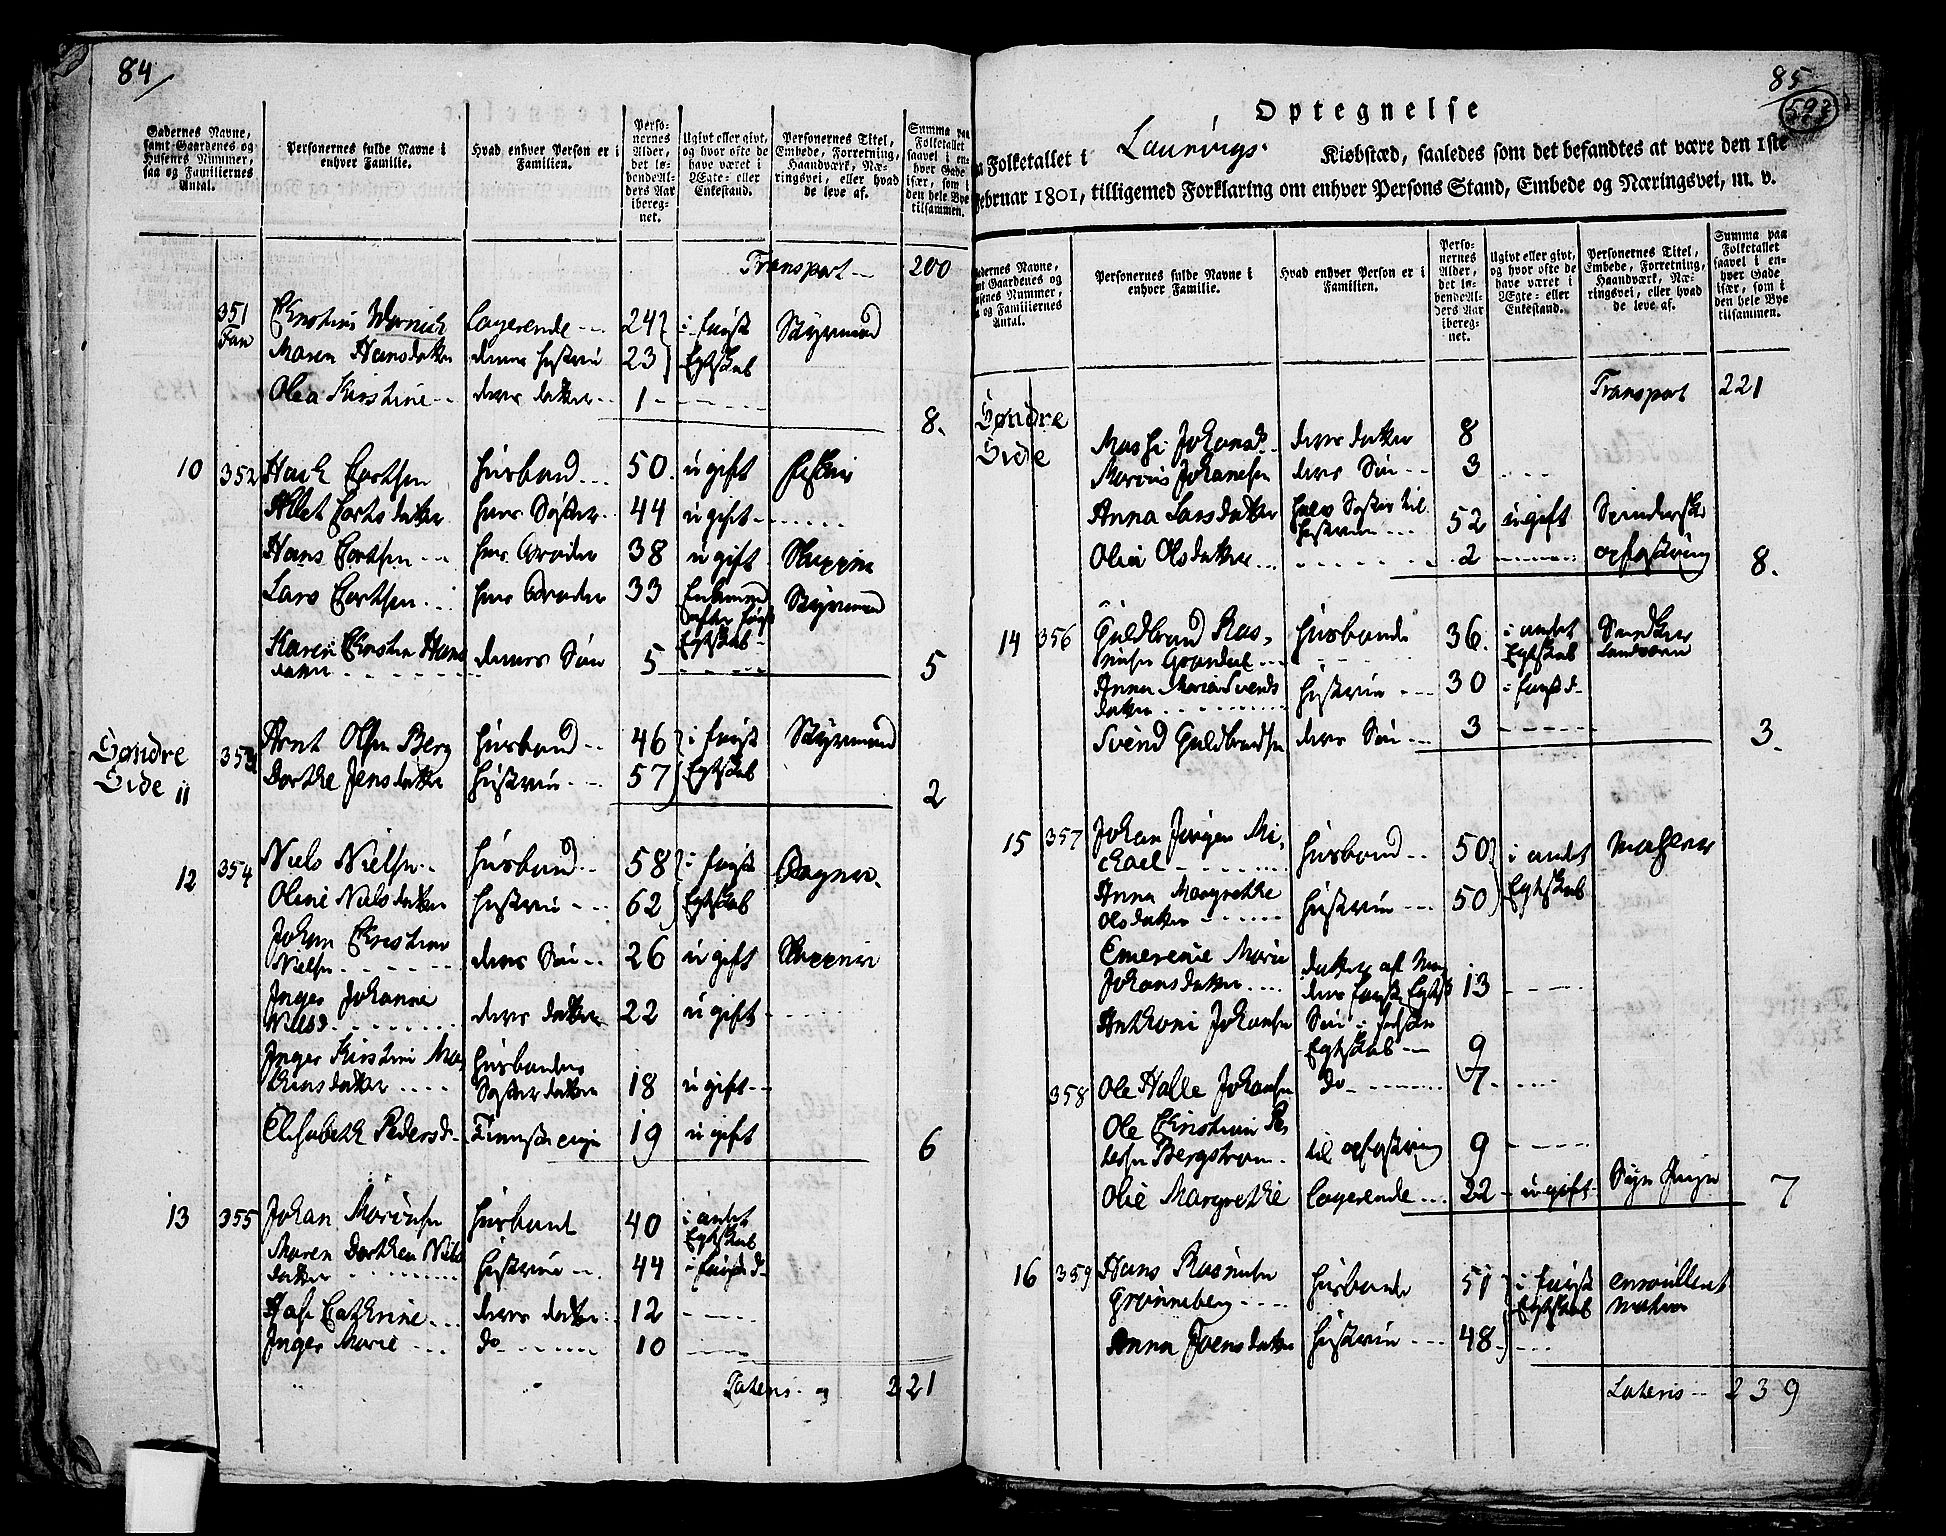 84
Gadernes Navne,
samt Gaardenes og
Husenes Nummer,
saa og Familiernes
Antal.
Personernes fulde Navne i
enhver Familie.
Hvad enhver Person er i
Familien.
Perso-
nernes
Alder,
det lø-
bende Al-
ders Aar
ibereg-
net.
Ugivt eller givt,
og hvor ofte de
have været i
Ægte- eller
Enkestand.
Personernes Titel,
Embede, Forretning,
Haandværk, Næ-
ringsvei, eller hvad
de leve af.
Summa paa
Folketallet
saavel i en-
hver Gade
især, som i
den hele Bye
tilsammen.
Transport 200
351 Christen logerende 24 i første Styrmand
Fam
Maren Hansdatter deres hustrue 23 Egteskab
Olea Kirstine deres datter 1
8.
10 352 Cortsen husbond 50. ugift
Cortsdatter hans Søster 44 ugift
Hans Cortsen hans Broder 38 ugift Skipper
Lars Cortsen hans Broder 33 Enkemand Styrmand
efter første
Egteskab
Karen Christen Hans
datter deres Søn 5
5
Søndre
Side
11 353 Arnt Olsen Berg husbond 46 i første Styrmand
Dorthe Jensdatter hustrue 57 Egteskab
2
12 354 Niels Nielsen husbond 58 i første
Oline Nielsdatter hustrue 62 Egteskab
Johan Christian
Nielsen deres Søn 26 ugift Skipper
Inger Johanne
Nielsd. deres datter 22 ugift
Inger Kirstine Ma- husbondens
thiasdatter Søsterdatter 18 ugift
Elisabeth Pedersd. Tienestepige 19 ugift
6
13 355 Johan husbond 40 i andet
Egteskab
Maren Dorthea Niels
datter hustrue 44 i første d
Cathrine deres datter 12
Inger Marie do 10
Lateris 221
85
593
Optegnelse
Folketallet i Laurvigs Kiøbstæd, saaledes som det befandtes at være den 1ste
Februar 1801, tilligemed Forklaring om enhver Persons Stand, Embede og Næringsvei, m. v.
Gadernes Navne,
samt Gaardenes og
Husenes Nummer,
saa og Familiernes
Antal.
Personernes fulde Navne i
enhver Familie.
Hvad enhver Person er i
Familien.
Perso-
nernes
Alder,
det lø-
bende Al-
ders Aar
ibereg-
net.
Ugivt eller givt,
og hvor ofte de
have været i
Ægte- eller
Enkestand.
Personernes Titel,
Embede, Forretning,
Haandværk, Næ-
ringsvei, eller hvad
de leve af.
Summa paa
Folketallet
saavel i en-
hver Gade
især, som i
den hele Bye
tilsammen.
Transport 221
Søndre
Side
Johansd. deres datter 8
Johansen deres Søn 3
Anna Larsdatter halv Søster til
hustruen 52 ugift Spinderske
Olea Olsdatter 2 opfostring
8.
14 356 Guldbrand Ras- husbonde 36. i andet
musen Egteskab
Anna Maria Svends
datter hustrue 30 i første d
Svend Guldbrandsen deres Søn 3
3.
15 357 Johan Jørgen Mi-
chael husbond 50 i andet Mahler
Anna Margrethe
Olsdatter hustrue 50 Egteskab
Emerense Marie
Johansdatter datter af Man
dens første Egtesk 13
Anthoni Johansen Søn i
Egteskab 9
358 Ole Halle Johansen do 7
Ole Christian Pe-
tersen Bergstrøm til opfostring 9
Olie Margrethe logerende 22 ugift Sye Pige
7
16 359 Hans Rasmusen husbonde 51 i første enroulleret
Grønneberg Egteskab Matros
Anna Joensdatter hustrue 48
Lateris 239